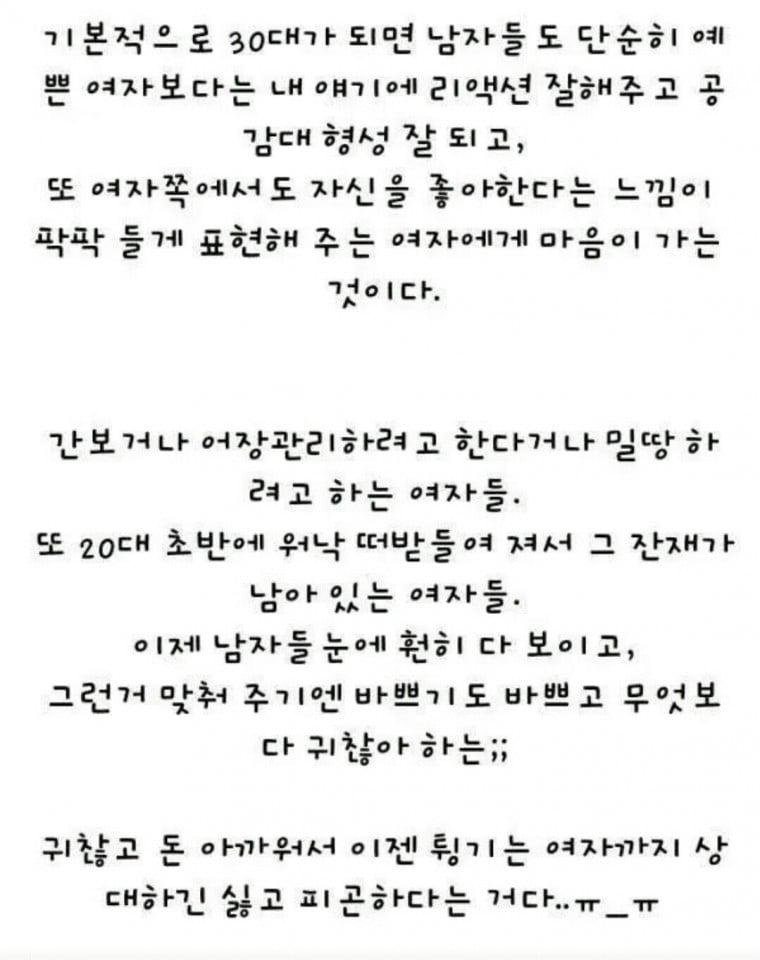 기본적으로 30대가 되면 남자들도 단순히 예
쁜 여자보다는 내 얘기에 리액션 잘해주고 공
감대 형성 잘 되고,
또 여자쪽에서도 자신을 좋아한다는 느낌이
팍팍 들게 표현해 주는 여자에게 마음이 가는
것이다.
간보거나 어장관리하려고 한다거나 밀땅 하
려고 하는 여자들.
또 20대 초반에 워낙 떠받들여 져서 그 잔재가
남아 있는 여자들.
이제 남자들 눈에 훤히 다 보이고,
그런거 맞춰 주기엔 바쁘기도 바쁘고 무엇보
다 귀찮아 하는;;
귀찮고 돈 아까워서 이젠 튕기는 여자까지 상
대하긴 싫고 피곤하다는 거다..ㅠ_ㅠ